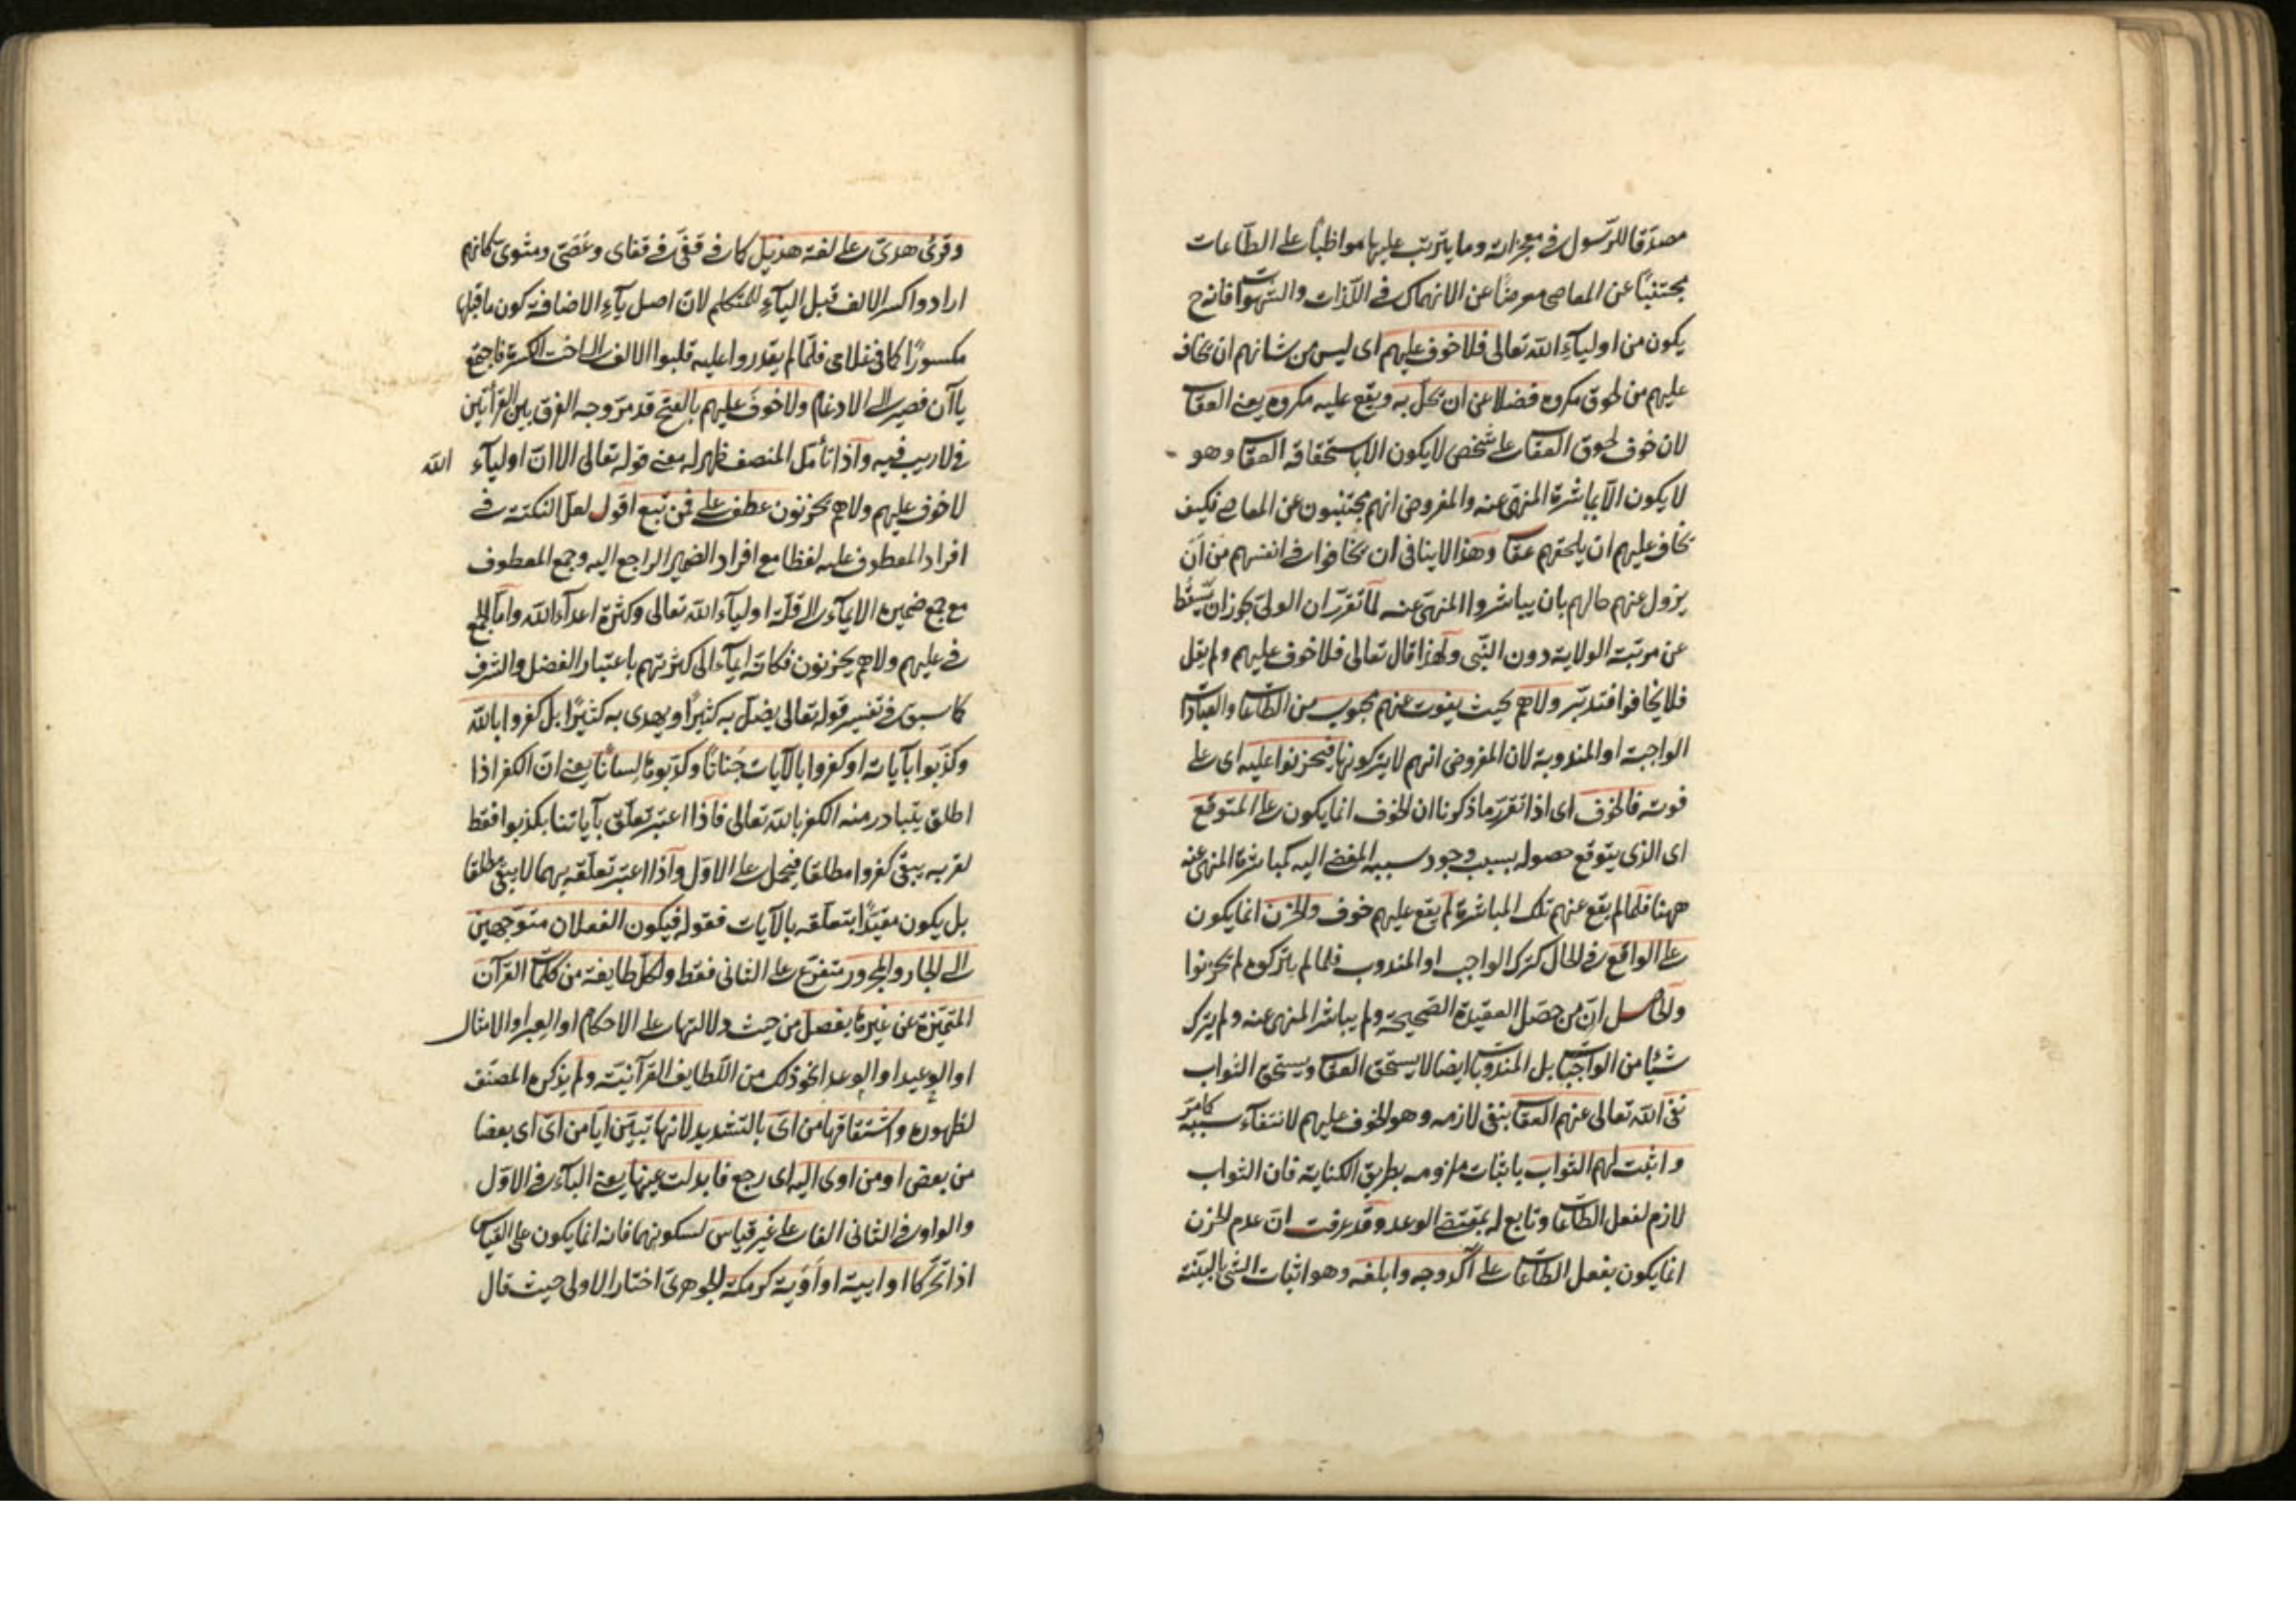 مصدّقا للرّسول في معجزاته وما يترتب عليها مواظبًا على الطّاعات
مجتنبًا عن المعاصى معرضًا عن الانهماك في اللّذات والشهوات فانه ح
يكون من اولياءِ الله تعالى فلا خوف عليهم اى ليس من شانهم ان يخاف
عليهم من لحوق مكروه فضلا عن ان يحلّ به ويقع عليه مكروه يعنى العقاب
لان خوف لحوق العقاب على شخص لا يكون الا باستحقاقه العقاب وهو
لا يكون الا بمباشرة المنهى عنه والمفروض انهم مجتنبون عن المعاصى فكيف
يخاف عليهم ان يلحقهم عقاب وهذا لا ينافى ان يخافوا في انفسهم من انّ
يزول عنهم حالهم بان يباشروا المنهىّ عنه لما تقرّر ان الولىّ يجوز ان يسقط
عن مرتبة الولاية دون النّبى ولهذا قال تعالى فلا خوف عليهم ولم يقل
فلا يخافوا فتدبّر ولا هم بحيث يفوت عنهم محبوب من الطّاعات والعبادات
الواجبة او المندوبة لان المفروض انهم لا يتركونها فيحزنوا عليه اى على
فوته فالخوف اى اذا تقرّر ما ذكرنا ان الخوف انما يكون على المتوقع
اى الذى يتوقع حصوله بسبب وجود سببه المفضى اليه كمباشرة المنهى عنه
ههنا فلما لم يقع عنهم تلك المباشرة لم يقع عليهم خوف والحزن انما يكون
على الواقع في الحال كترك الواجب او المندوب فلما لم يتركوه لم يحزنوا
والحاصل انّ من حصّل العقيدة الصّحيحة ولم يباشر المنهى عنه ولم يترك
شيئا من الواجبات بل المندوبات ايضا لا يستحق العقاب ويستحق الثواب
نفى الله تعالى عنهم العقاب بنفى لازمه وهو الخوف عليهم لانتفاء سببه كما مرّ
واثبت لهم الثواب باثبات ملزومه بطريق الكناية فان الثواب
لازم لفعل الطاعات وتابع له بمقتضى الوعد وقد عرفت انّ عدم الحزن
انما يكون بفعل الطاعات على آكد وجه وابلغه وهو اثبات الشئ بالبيّنة
وقرئ هدىّ على لغة هذيل كما في قفىّ في قفاى وعصىّ ومثوىّ كانهم
ارادوا كسر الالف قبل الياءِ للمتكلم لانّ اصل ياءِ الاضافة كون ما قبلها
مكسورًا كما في غلامى فلمّا لم يقدروا عليه قلبوا الالف الى اخت الكسرة فاجتمع
ياآن فصير الى الادغام ولا خوفَ عليهم بالفتح قد مرّ وجه الفرق بين القرأتين
في لا ريب فيه واذا تأمّل المنصف ظهر له معنى قوله تعالى الا انّ اولياء الله
لا خوف عليهم ولا هم يحزنون عطف على فمن تبع اقول لعلّ النكتة في
افراد المعطوف عليه لفظا مع افراد الضمير الراجع اليه وجمع المعطوف
مع جمع ضميره الايماء الى قلّة اولياء الله تعالى وكثرة اعداء الله واما الجمع
في عليهم ولا هم يحزنون فكانّه ايماء الى كثرتهم باعتبار الفضل والشرف
كما سبق في تفسير قوله تعالى يضلّ به كثيرًا ويهدى به كثيرًا بل كفروا بالله
وكذّبوا بآياته او كفروا بالآيات جَنانًا وكذّبوها لسانًا يعنى انّ الكفر اذا
اطلق يتبادر منه الكفر بالله تعالى فاذا اعتبر تعلّق بآياتنا بكذبوا فقط
لقربه يبقى كفروا مطلقا فيحمل على الاوّل واذا اعتبر تعلّقه بهما لا يبقى مطلقا
بل يكون مقيّدًا بتعلّقه بالآيات فقوله فيكون الفعلان متوجّهين
الى الجار والمجرور متفرّع على الثانى فقط ولكلّ طايفة من كلمات القرآن
المتميّزة عن غيرها بفصل من حيث دلالتها على الاحكام او العبر او الامثال
او الوعيد او الوعد او نحو ذلك من اللّطايف القرآنيّة ولم يذكره المصنّف
لظهوره واشتقاقها من اىّ بالتشديد لانها تبيّن ايّا من اىّ اى بعضا
من بعض او من اوى اليه اى رجع فابدلت عينها يعنى الياء في الاوّل
والواو في الثانى الفا على غير قياس لسكونهما فانه انما يكون على القياس
اذا تحرّكا او ايية او أوَية كرمكة الجوهرىّ اختار الاولى حيث قال